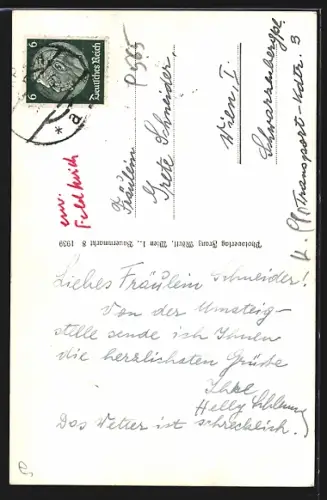 6 Deutsches Reich 6
* a
P 565
Fräulein
Grete Schneider,
Wien, I.
Schwarzenbergpl.
Transport-Kdtr. 3
em.
Feldkirch
Photoverlag Franz Mörtl, Wien I., Bauernmarkt 8 1939
Liebes Fräulein Schneider!
Von der Umsteig-
stelle sende ich Ihnen
die herrlichsten Grüsse
Ihre
Helly
Das Wetter ist schrecklich.